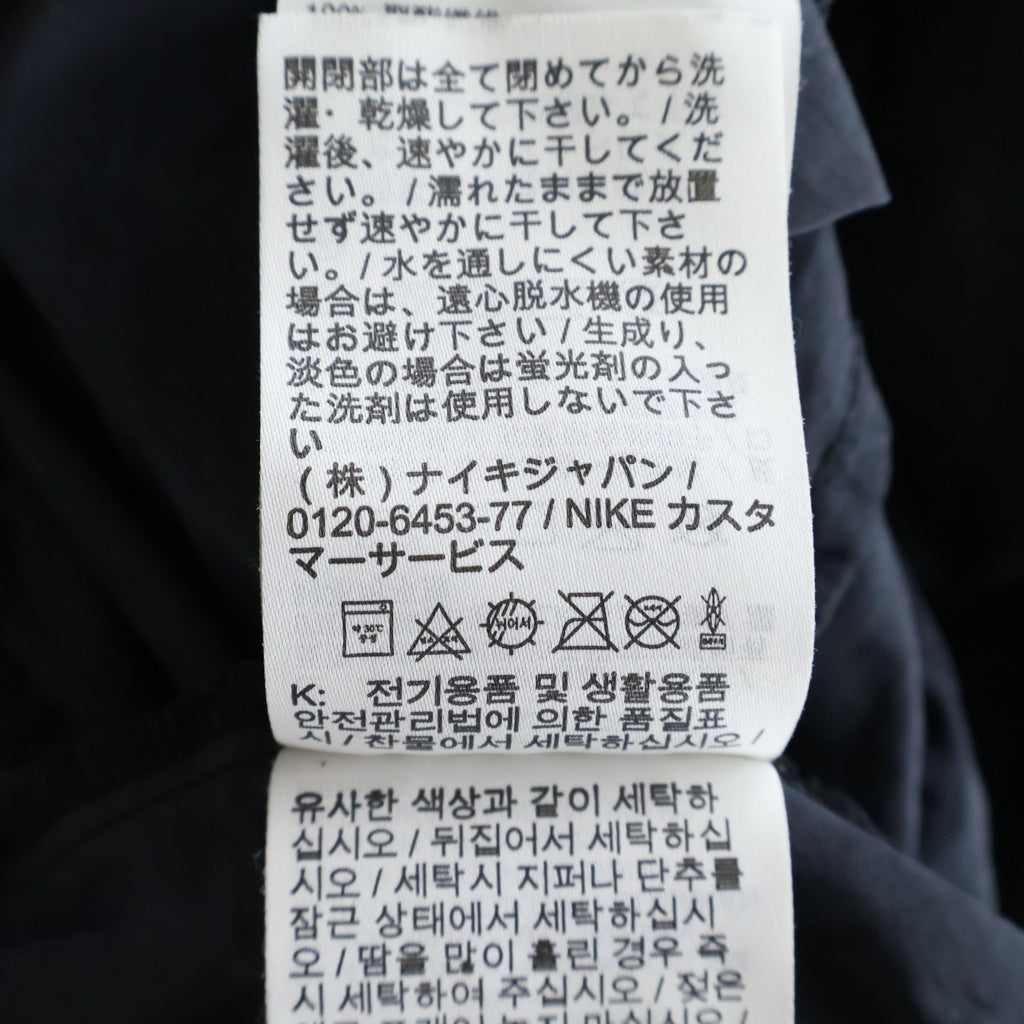 100%
開閉部は全て閉めてから洗
濯・乾燥して下さい。/洗
濯後、速やかに干してくだ
さい。/濡れたままで放置
せず速やかに干して下さ
い。/水を通しにくい素材の
場合は、遠心脱水機の使用
はお避け下さい/生成り、
淡色の場合は蛍光剤の入っ
た洗剤は使用しないで下さ
い
(株)ナイキジャパン/
0120-6453-77 / NIKE カスタ
マーサービス
약 30℃ 중성
뉘어서
K: 전기용품 및 생활용품
안전관리법에 의한 품질표
시 / 찬물에서 세탁하십시오 /
유사한 색상과 같이 세탁하
십시오 / 뒤집어서 세탁하십
시오 / 세탁시 지퍼나 단추를
잠근 상태에서 세탁하십시
오 / 땀을 많이 흘린 경우 즉
시 세탁하여 주십시오 / 젖은